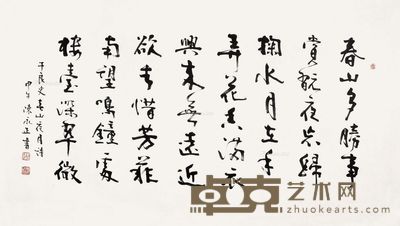 春山多勝事
賞翫夜忘歸
掬水月在手
弄花香滿衣
興來無遠近
欲去惜芳菲
南望鳴鐘處
樓臺深翠微
于良史春山夜月詩
甲午
卓克艺术网
zhuokearts.com